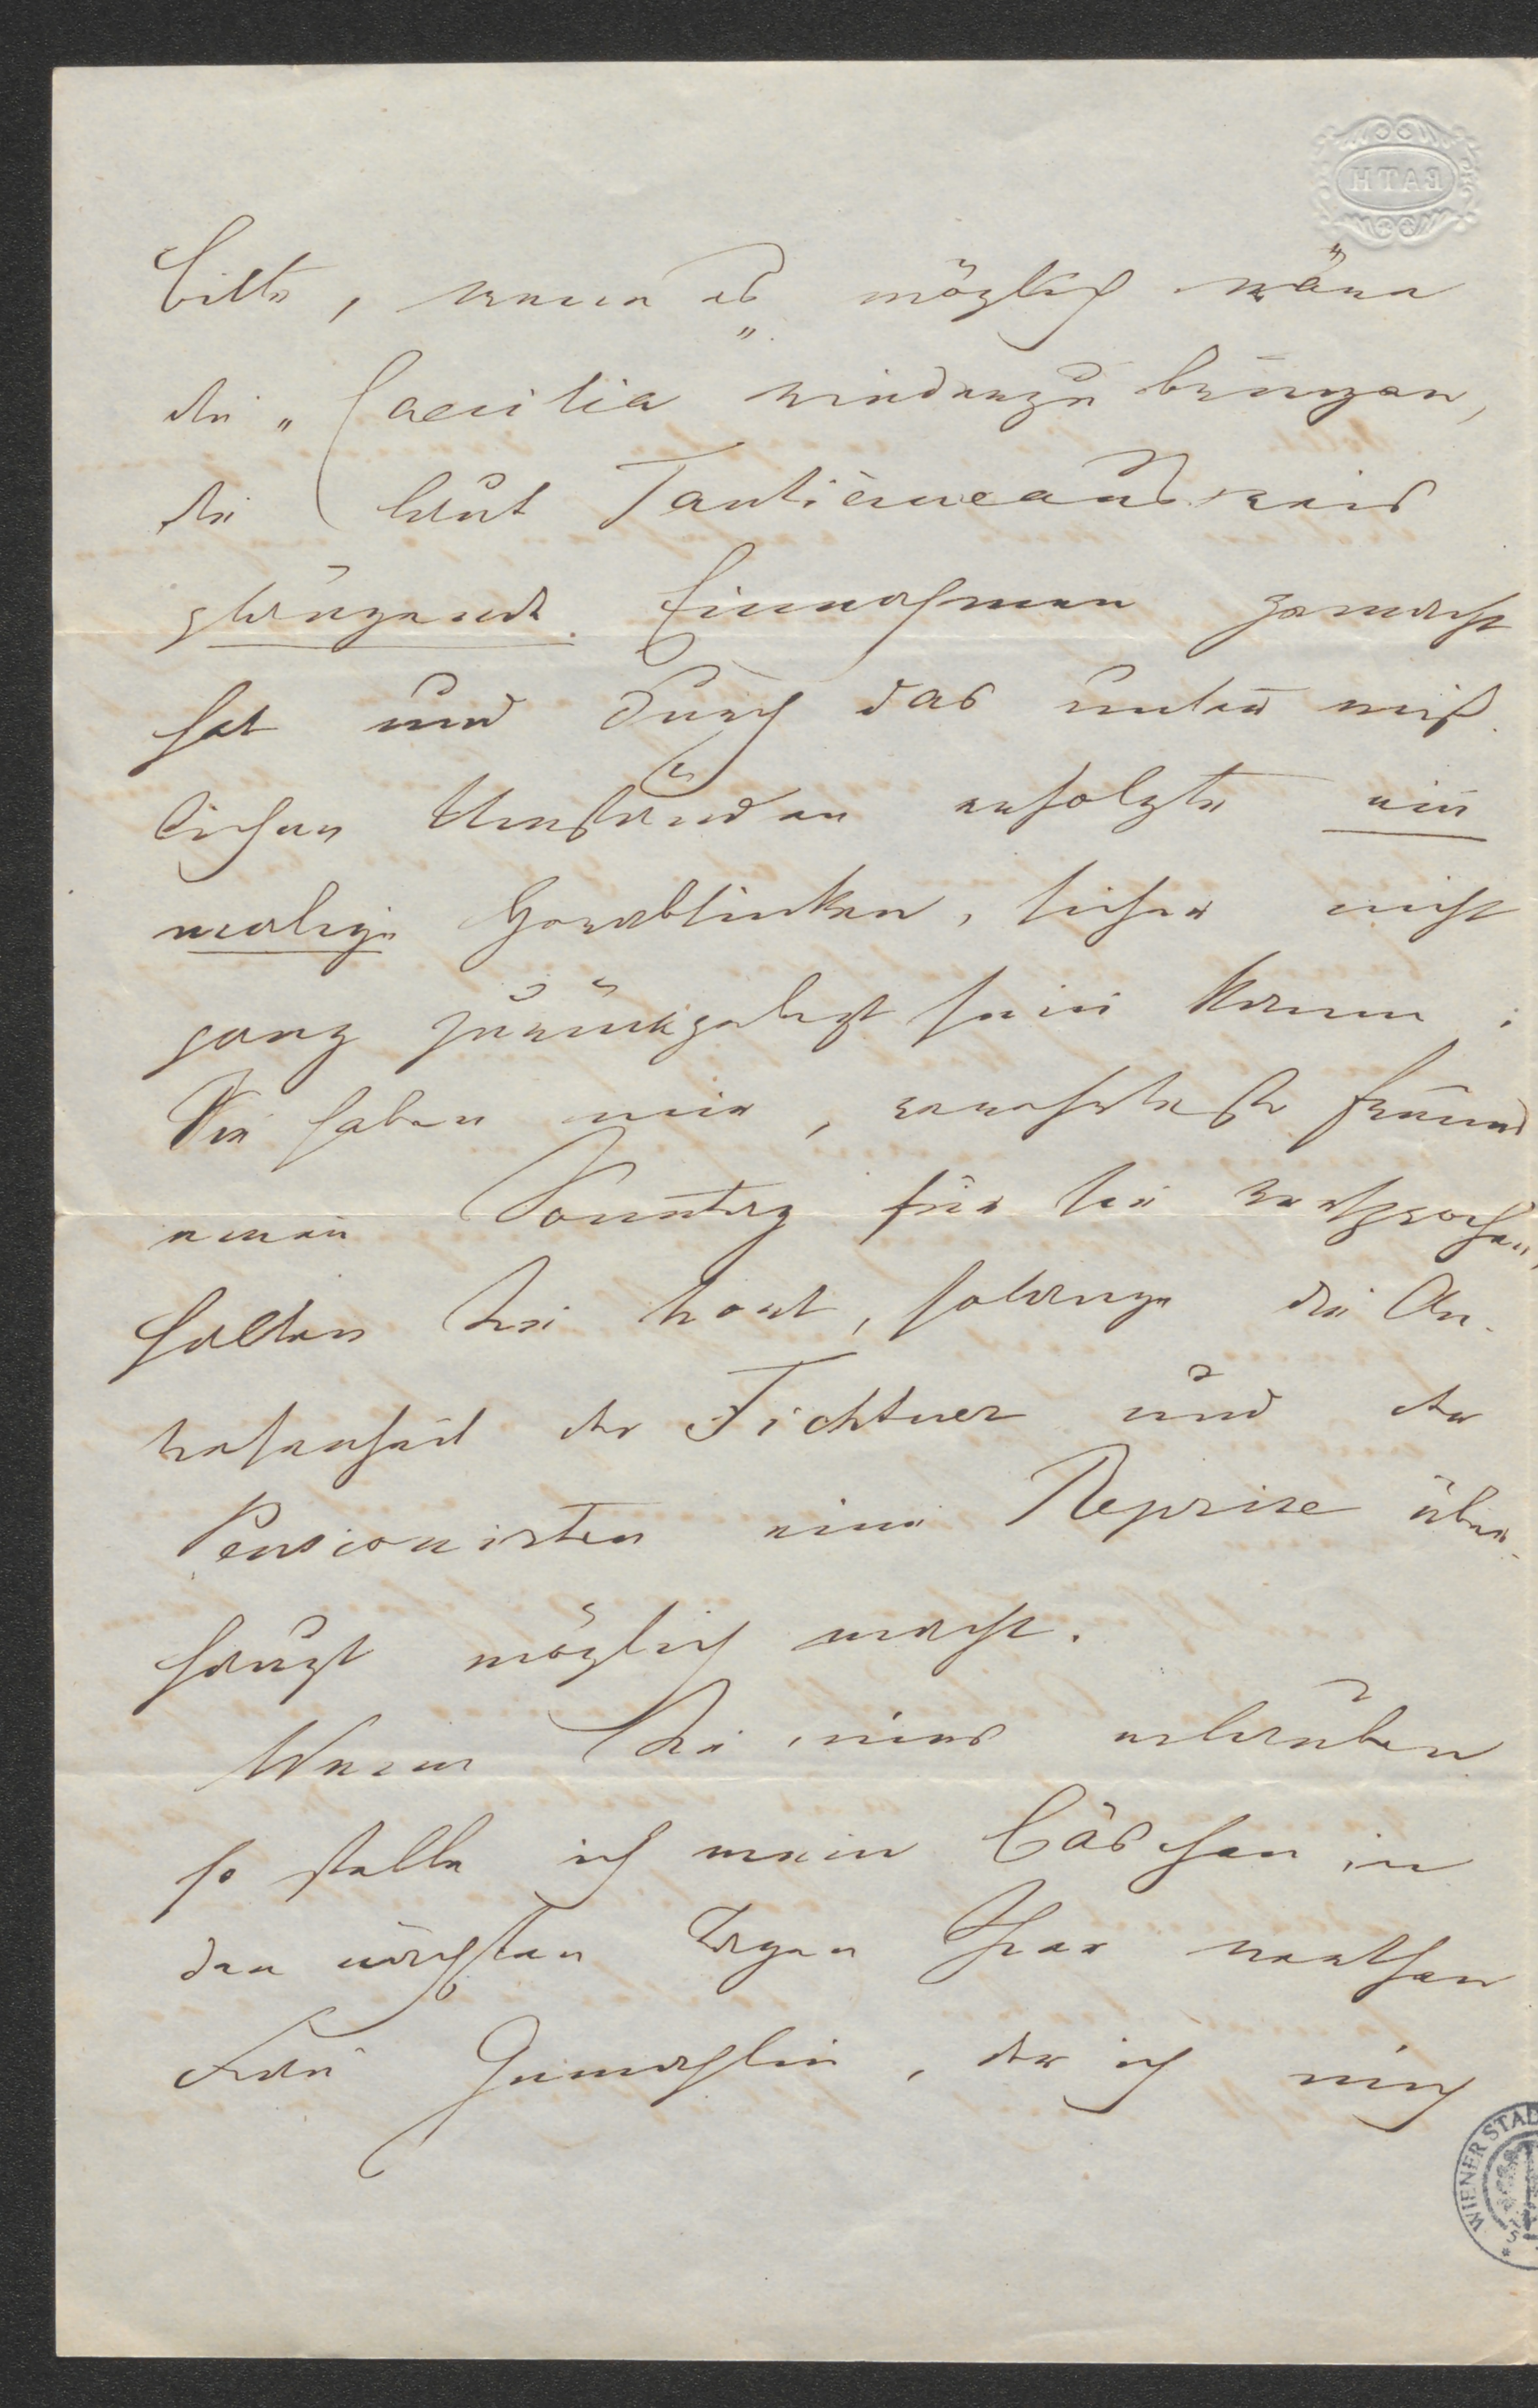 bitte, wenn es möglich wäre
die „Caecilia" wiederzubringen,
die laut Tantiemeausweis
glänzende Einnahmen gemacht
hat und durch das unter miß-
lichen Umständen erfolgte ein
malige Herablinken, sicher nicht
ganz zurückgelegt sein kann;
Sie haben mir, verehrtester Freund
einen Sonntag für sie versprochen,
halten Sie Wort, solange die An-
wesenheit der Fichtner und der
Pensionisten eine Reprise über-
haupt möglich macht.
Wenn Sie mirs erlauben
so stelle ich mein Bäschen in
den nächsten Tagen Ihrer werthen
Frau Gemahlin, der ich mich
RATH
WIENER STAD